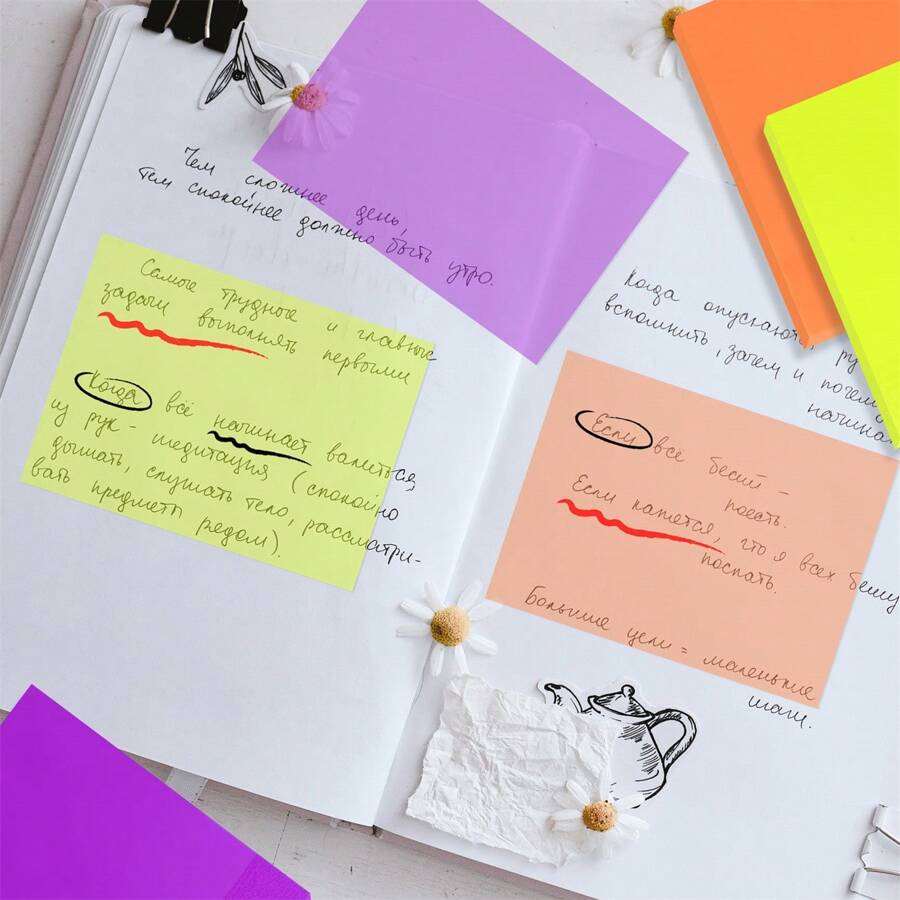 Чем сложнее день,
тем спокойнее должно быть утро.
Самые трудные и главные
задачи выполнять первыми
Когда всё начинает валиться
из рук - медитация (спокойно
дышать, слушать тело, рассматри-
вать предметы рядом).
Когда опускаются ру
вспомнить, зачем и почему
начина
Если всё бесит -
поесть.
Если кажется, что я всех бешу
поспать.
Большие цели = маленькие
шаги.